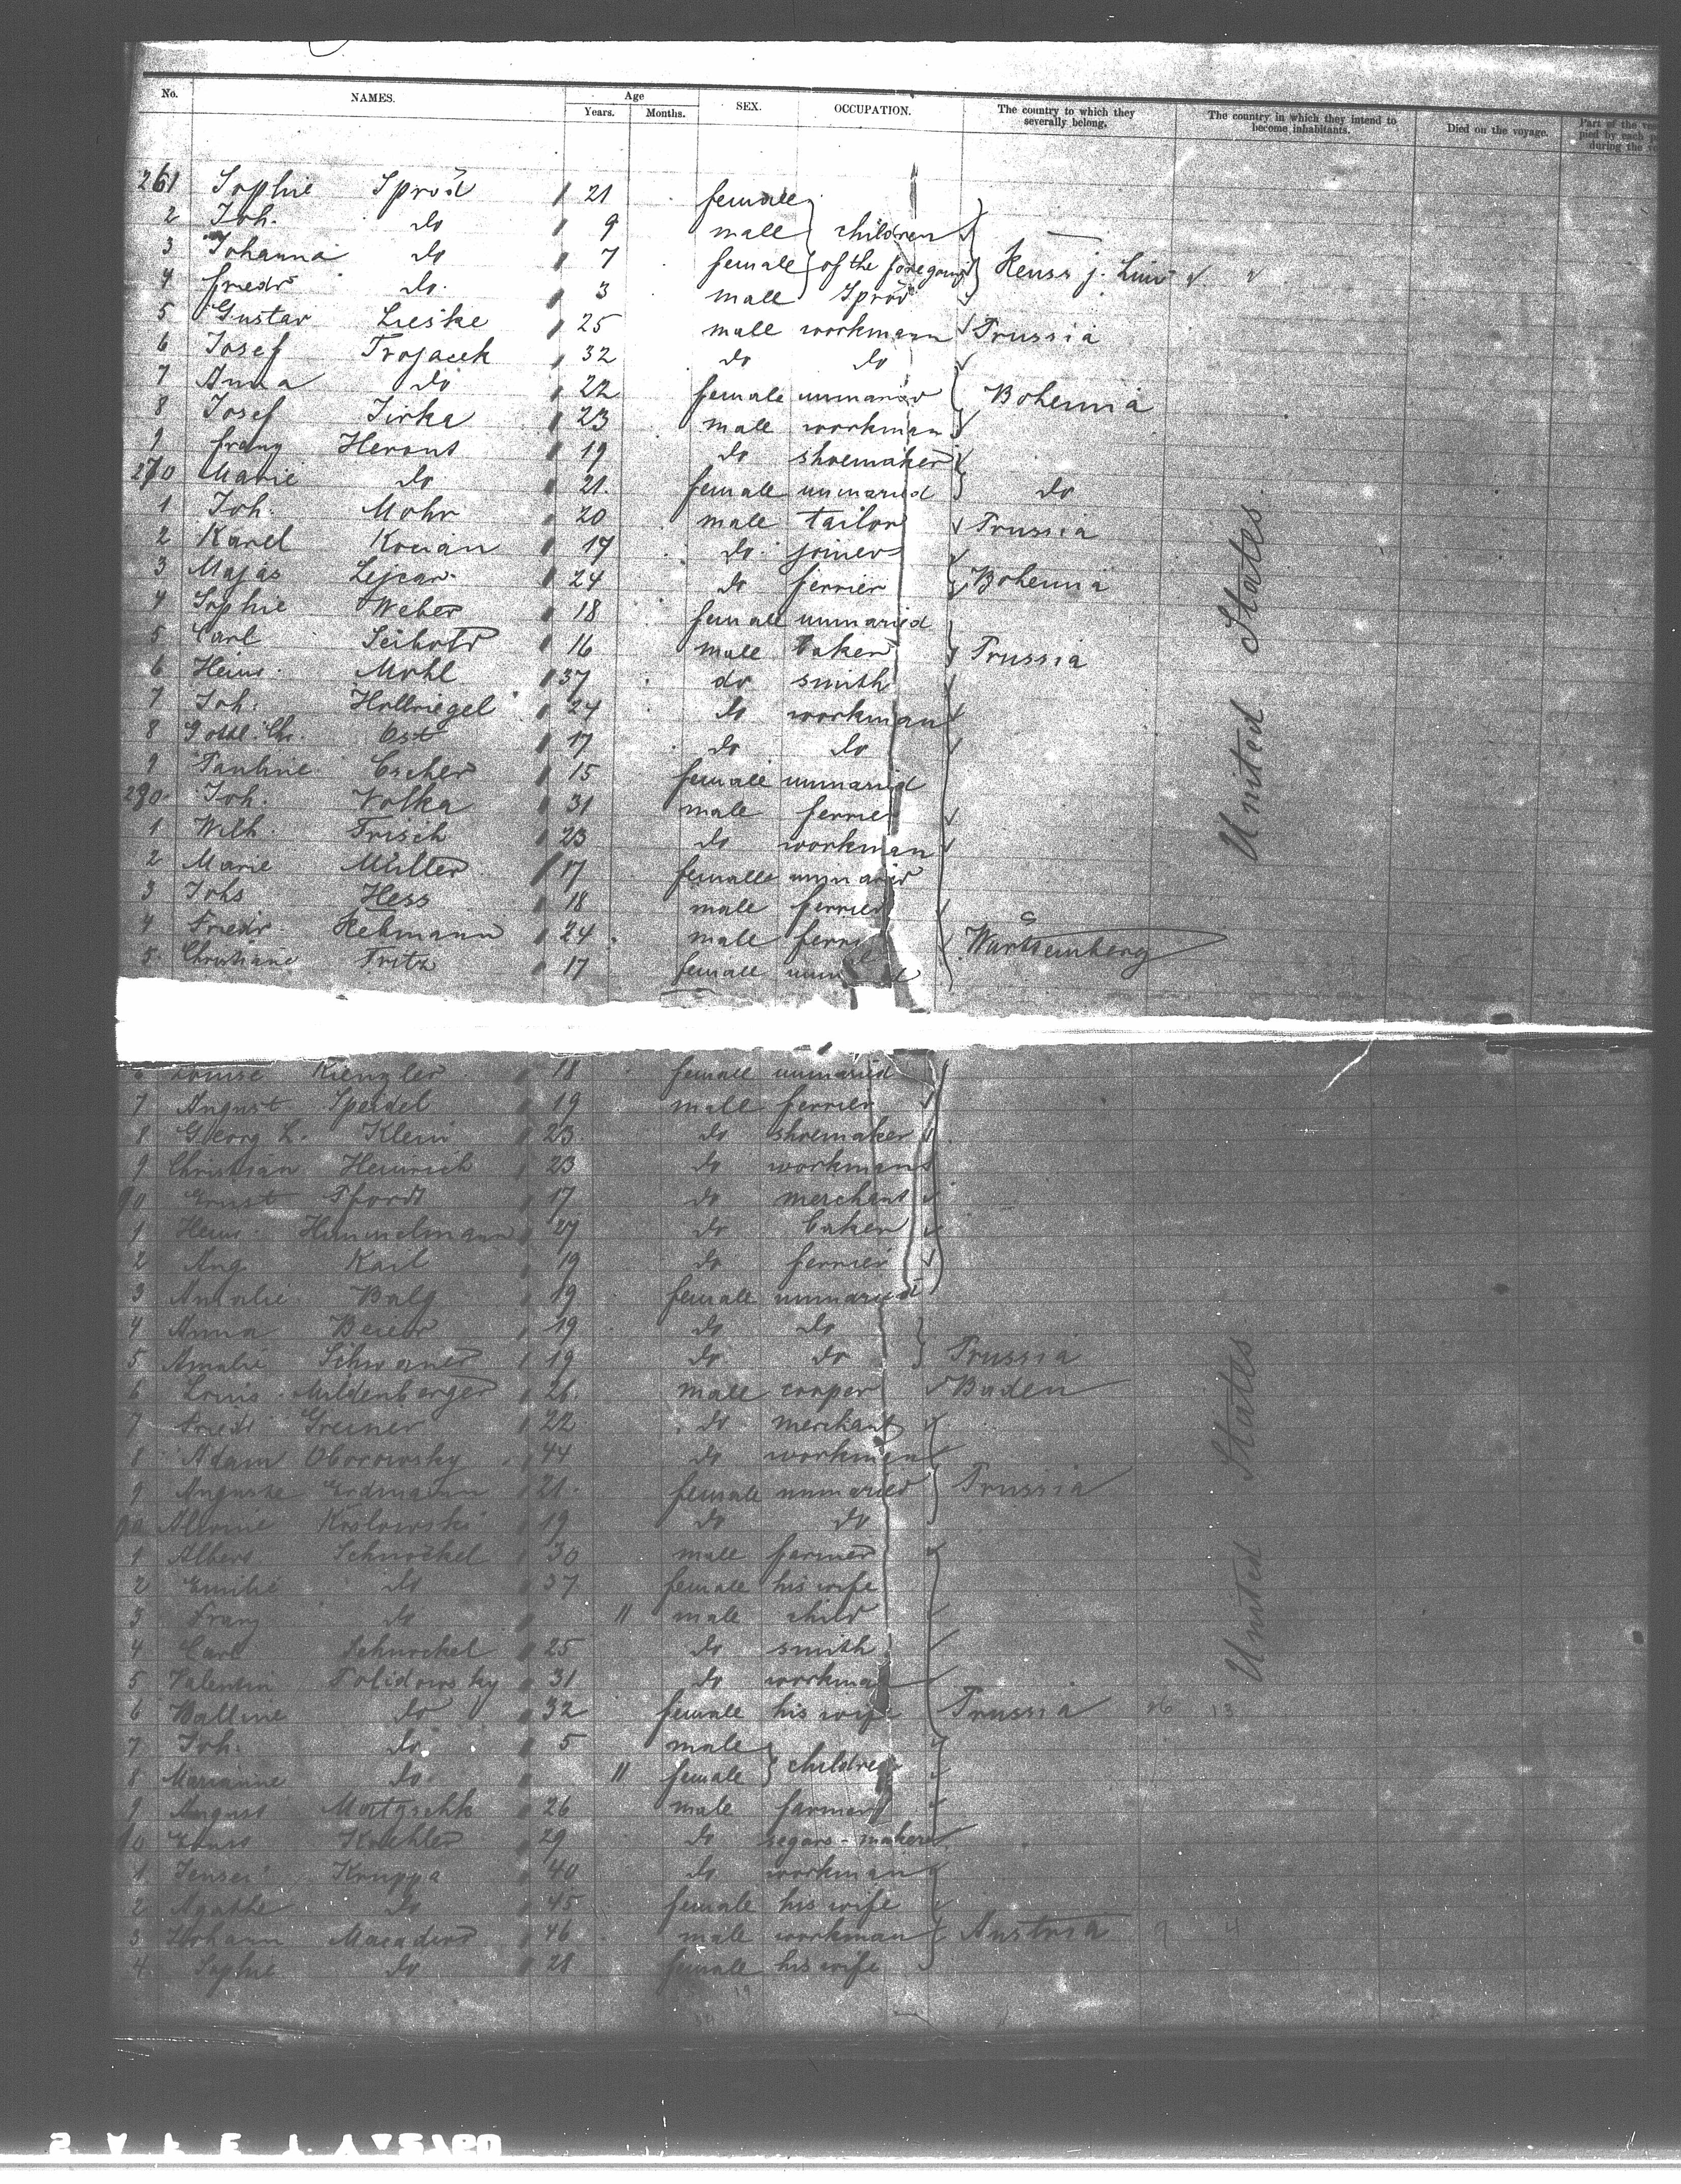 No. NAMES. Age Years. Months. SEX. OCCUPATION. The country to which they severally belong. The country in which they intend to become inhabitants. Died on the voyage. Part of the
261 Sophie Spröd 21 female
2 Joh. do 9 male children
3 Johanna do 7 female of the foregoing Reuss j. Linie
4 Friedr do. 3 male Spröd
5 Gustav Lieske 25 male workmann Prussia
6 Josef Trojacek 32 do do
7 Anna do 22 female unmaried Bohemia
8 Josef Jirka 23 male workman
9 Franz Herout 19 do shoemaker
270 Marie do 21. female unmaried do
1 Joh. Mohr 20 male tailor Prussia
2 Karel Kocian 17 do. joiner
3 Majas Lejcar 24 do ferrier Bohemia
4 Sophie Weber 18 female unmaried
5 Carl Seibold 16 male baker Prussia
6 Heinr. Mohl 37 do smith
7 Joh. Hollriegel 24 do workman
8 Gottl. Chr. Ost 17 do do
9 Pauline Escher 15 female unmaried
280 Joh. Volka 31 male ferrier
1 Wilh. Frisch 23 do workman
2 Marie Müller 17 female unmaried
3 Johs Hess 18 male ferrier
4 Friedr. Rebmann 24 male Württemberg
5. Christiane Fritz 17 female
Louise Kienzler 18 female unmaried
7 August Speidel 19 male ferrier
8 Georg L. Klein 23 do shoemaker
9 Christian Heinrich 23 do workmann
90 Ernst Pfordt 17 do merchant
1 Heinr. Himmelmann 27 do baker
2 Aug. Karl 19 do ferrier
3 Amalie Balg 19 female unmaried
4 Anna Beier 19 do do
5 Amalie Schwaner 19 do do Prussia
6 Louis Mildenberger 21. male cooper Baden
7 Friedr Greiner 22 do merchant
8 Adam Oborowsky 44 do workman
9 Auguste Erdmann 21. female unmaried Prussia
Koslowski 19 do do
1 Albert Schnöckel 30 male farmer
2 Emilie do 37 female his wife
3 Franz do 11 male child
4 Carl Schnöckel 25 do smith
5 Valentin Polidowsky 31 do workman
6 do 32 female his wife Prussia 26 13
7 Joh. do 5 male children
8 Marianne do 11 female
9 August 26 male farmer
10 Ernst Koehler 29 do segars-maker
1 Kruppa 40 do workman
2 Agathe do 45 female his wife
3 Johann 46 male workman Austria 9 4
4. Sophie do 28 female his wife
United States
United States